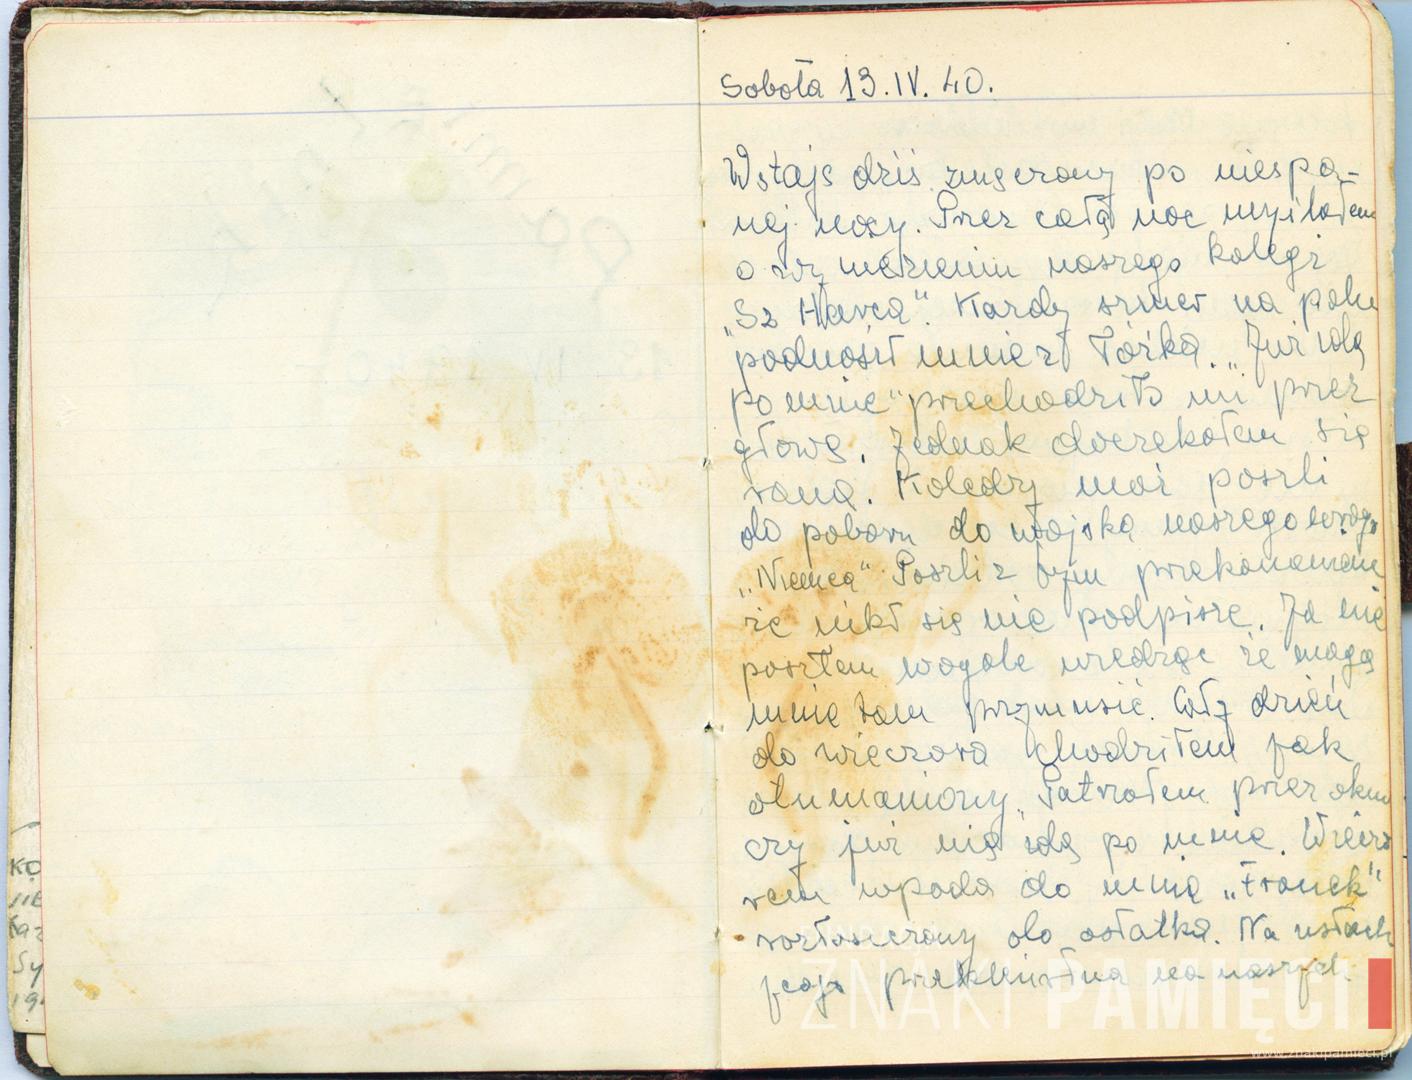 Sobota 13.IV.40.
Wstaję dziś zmęczony po niespa-
nej nocy. Przez całą noc myślałem
o naszego kolegi
„Sz Havca". Każdy szmer na polu
podnosił mnie z łóżka. „Już idą
po mnie" przechodziło mi przez
głowę. Jednak doczekałem się
rana. Koledzy moi poszli
do poboru do wojska naszego wroga
„Niemca" Poszli z tym przekonaniem
że nikt się nie podpisze. Ja nie
poszłem wogóle wiedząc że mogą
mnie tam przymusić. Cały dzień
do wieczora chodziłem jak
otumaniony. Patrzałem przez okno
czy już nie idą po mnie. Wieczo
rem wpada do mnie „Franek"
rozłoszczony do ostatka. Na ustach
jego na naszych
ZNAKI PAMIĘCI
www.znakipamieci.pl